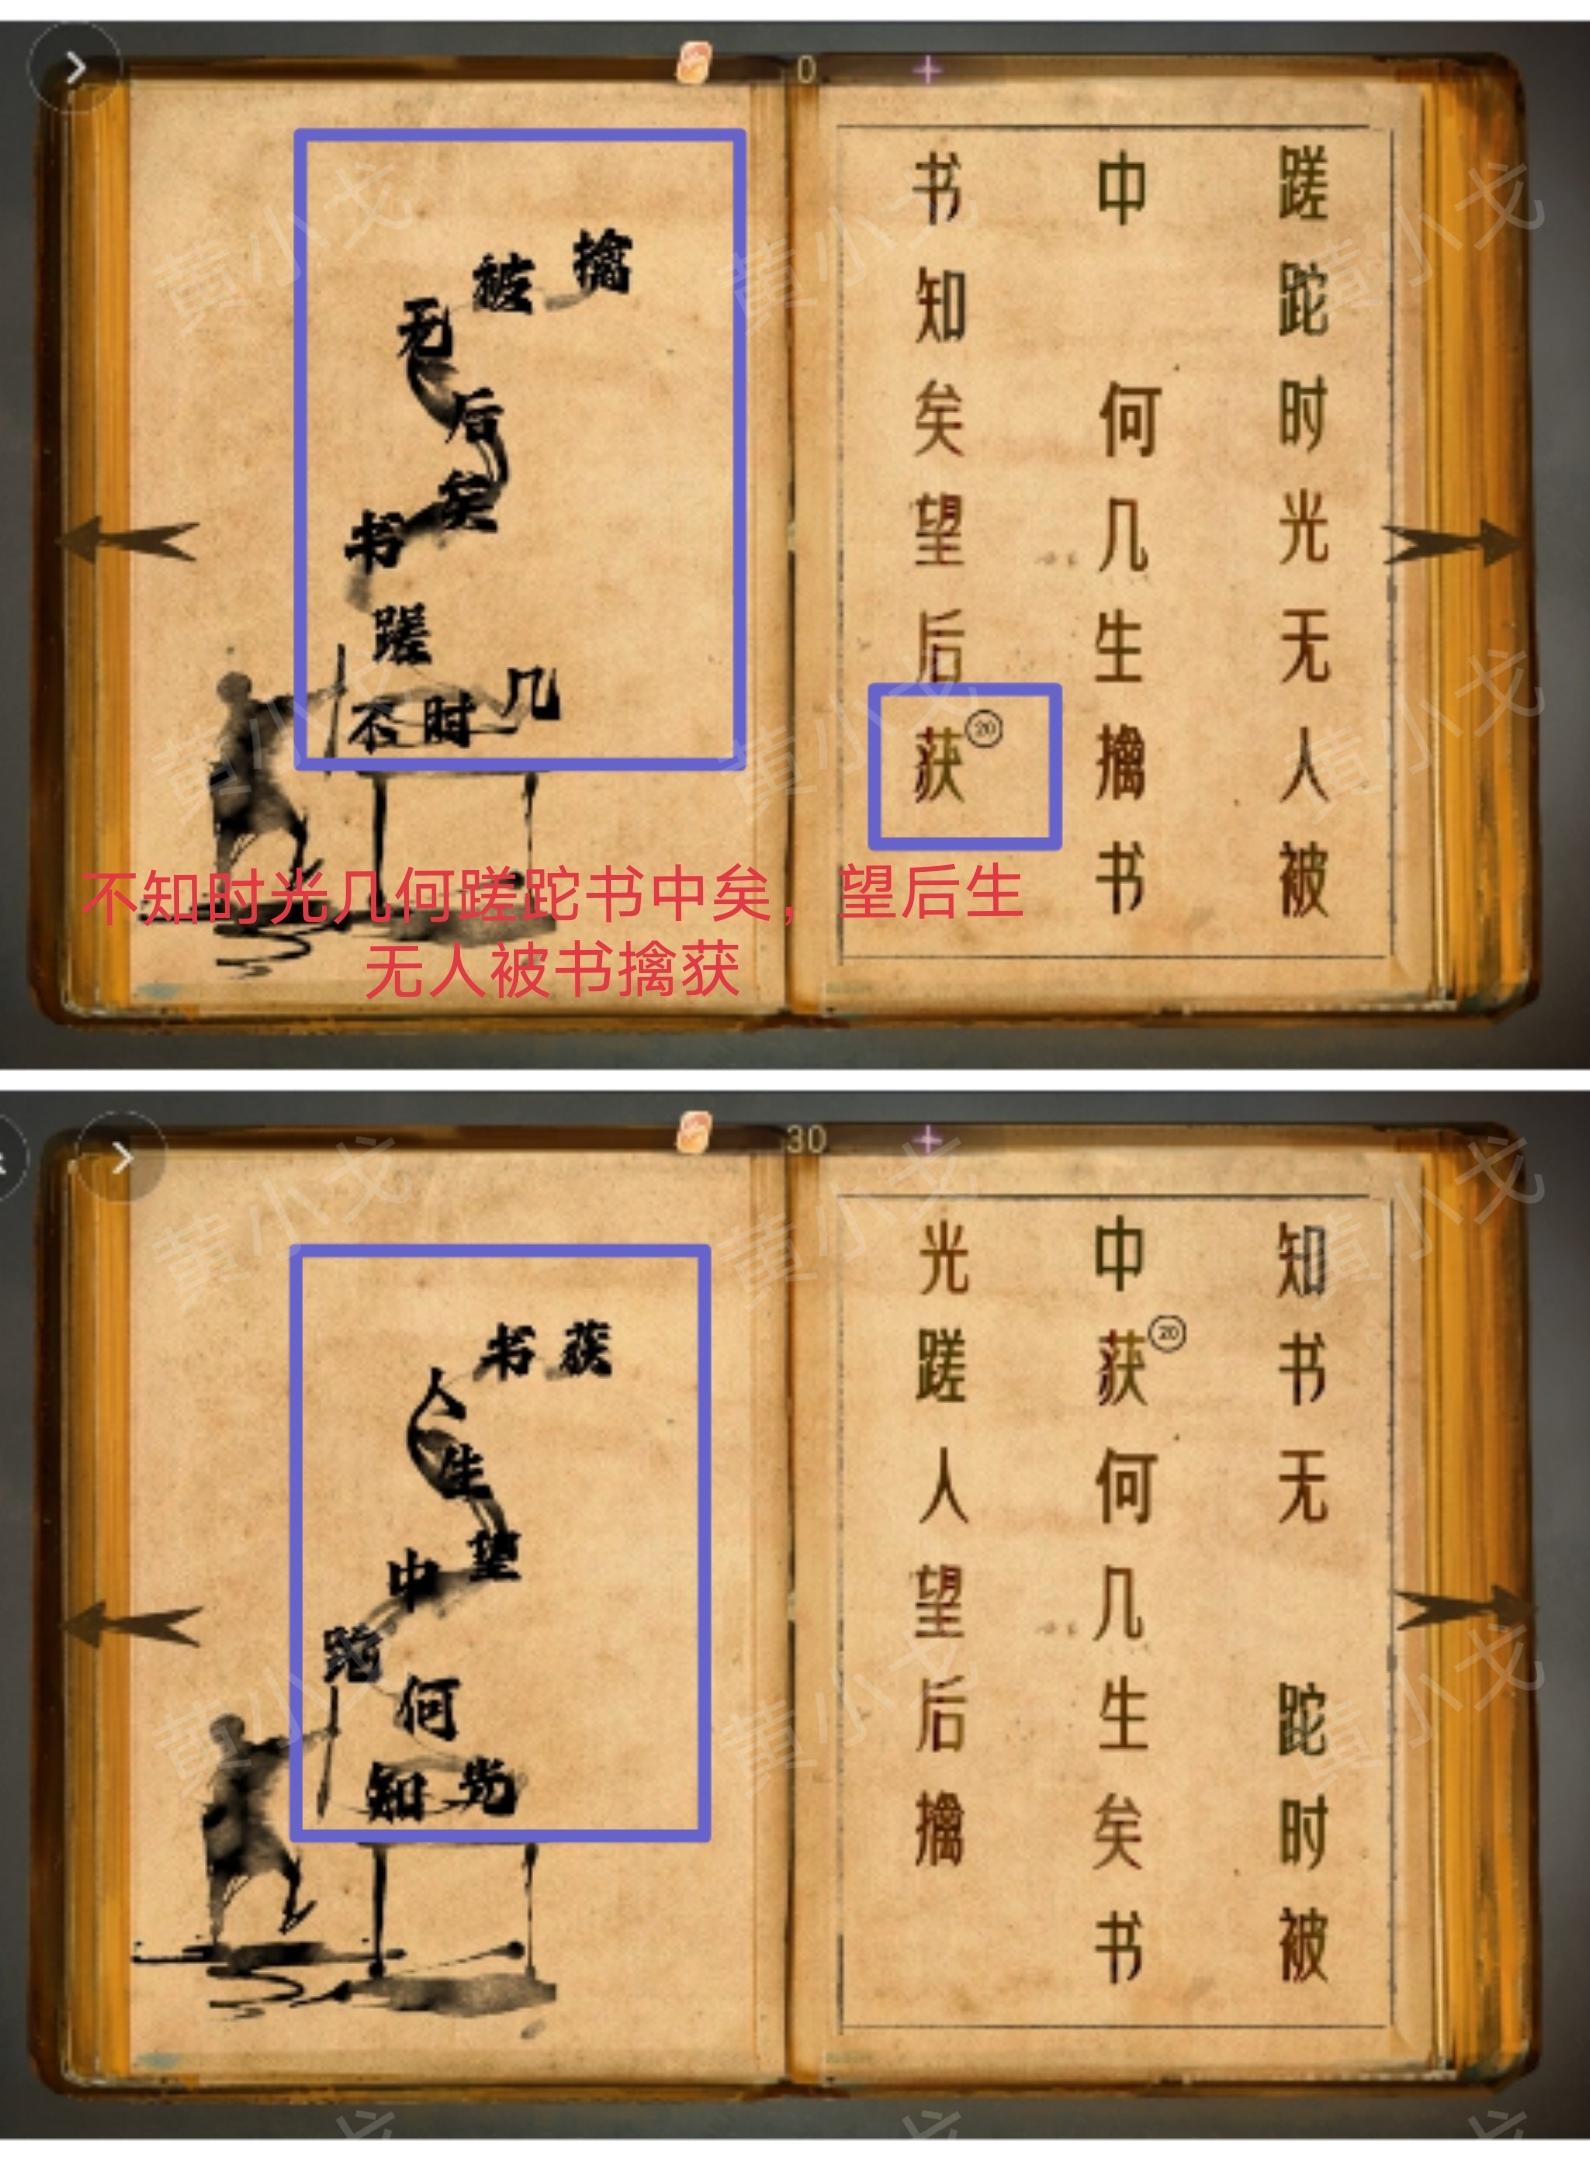 0
擒
被
无
后
矣
书
蹉
不时几
书 中 蹉
知 跎
矣 何 时
望 几 光
后 生 无
获⑳ 擒 人
书 被
不知时光几何蹉跎书中矣，望后生
无人被书擒获
30
书获
人
生
望
中
跎
何
知光
光 中 知
蹉 获⑳ 书
人 何 无
望 几
后 生 跎
擒 矣 时
书 被
黄小戈